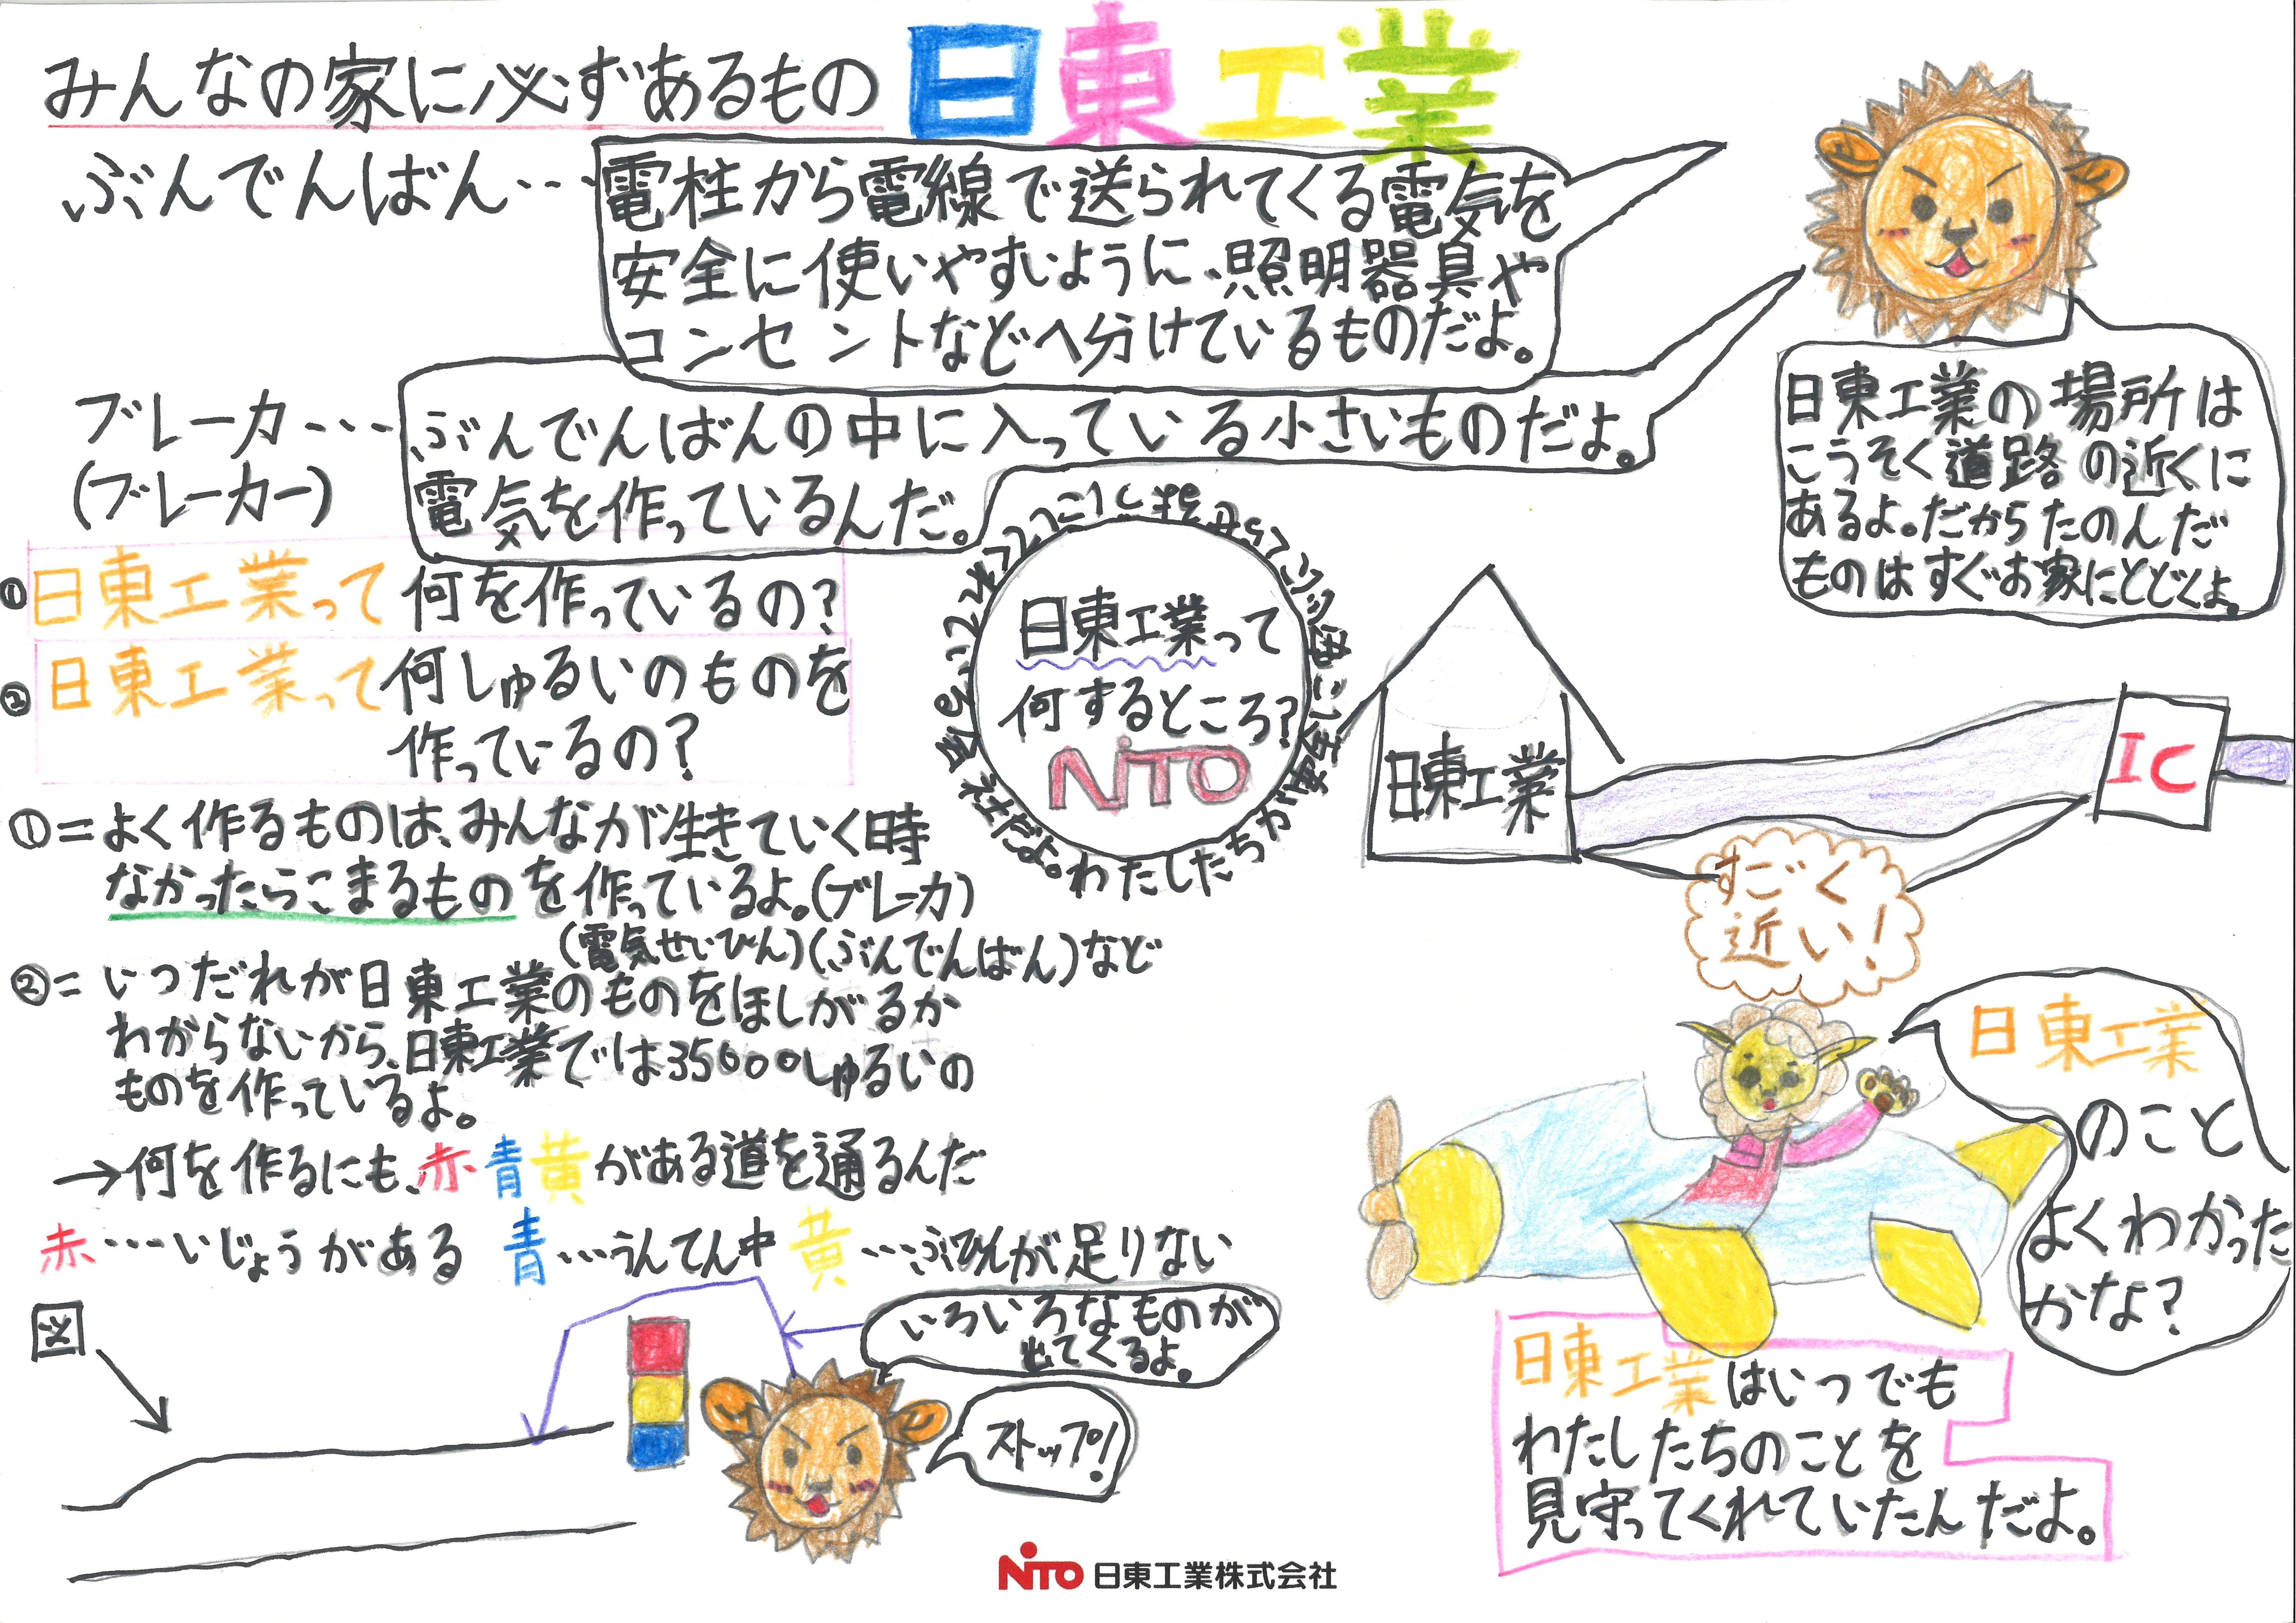 みんなの家に必ずあるもの
日東工業
ぶんでんばん…
電柱から電線で送られてくる電気を
安全に使いやすいように、照明器具や
コンセントなどへ分けているものだよ。
ブレーカ…
(ブレーカー)
ぶんでんばんの中に入っている小さいものだよ。
電気を作っているんだ。
日東工業の場所は
こうそく道路の近くに
あるよ。だからたのんだ
ものはすぐお家にとどくよ。
① 日東工業って何を作っているの?
② 日東工業って何しゅるいのものを
作っているの?
日東工業って
何するところ?
NITO
わたしたちが安全に
会社だよ。
日東工業
IC
すごく
近い!
①=よく作るものは、みんなが生きていく時
なかったらこまるものを作っているよ。(ブレーカ)
(電気せいひん)(ぶんでんばん)など
②=いつだれが日東工業のものをほしがるか
わからないから、日東工業では35000しゅるいの
ものを作っているよ。
→何を作るにも、赤青黄がある道を通るんだ
赤…いじょうがある 青…うんてん中 黄…ぶひんが足りない
図
いろいろなものが
出てくるよ。
ストップ!
日東工業
のこと
よくわかった
かな?
日東工業はいつでも
わたしたちのことを
見守ってくれていたんだよ。
NITO 日東工業株式会社